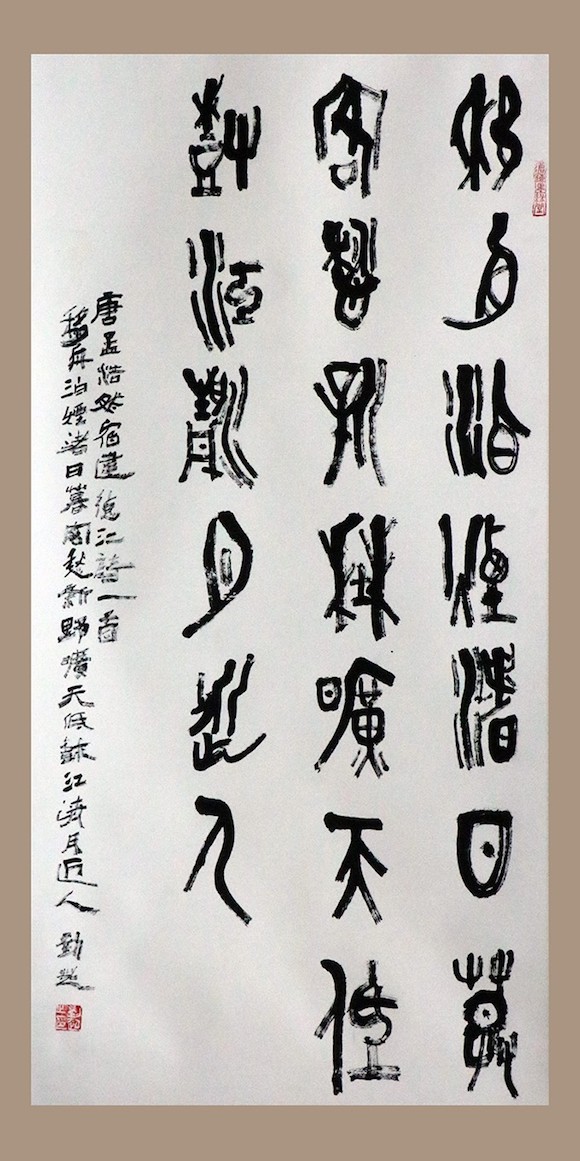 移舟泊煙渚日暮
客愁新野曠天低
樹江清月近人
唐孟浩然宿建德江詩一首
移舟泊煙渚日暮客愁新野曠天低樹江清月近人